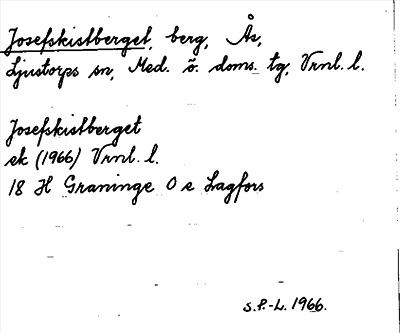 Josefskistberget, berg, Ås,
Ljustorps sn, Med. ö. doms. tg, Vrnl. l.
Josefskistberget
ek (1966) Vrnl. l.
18 H Graninge O e Lagfors
S.P.-L. 1966.